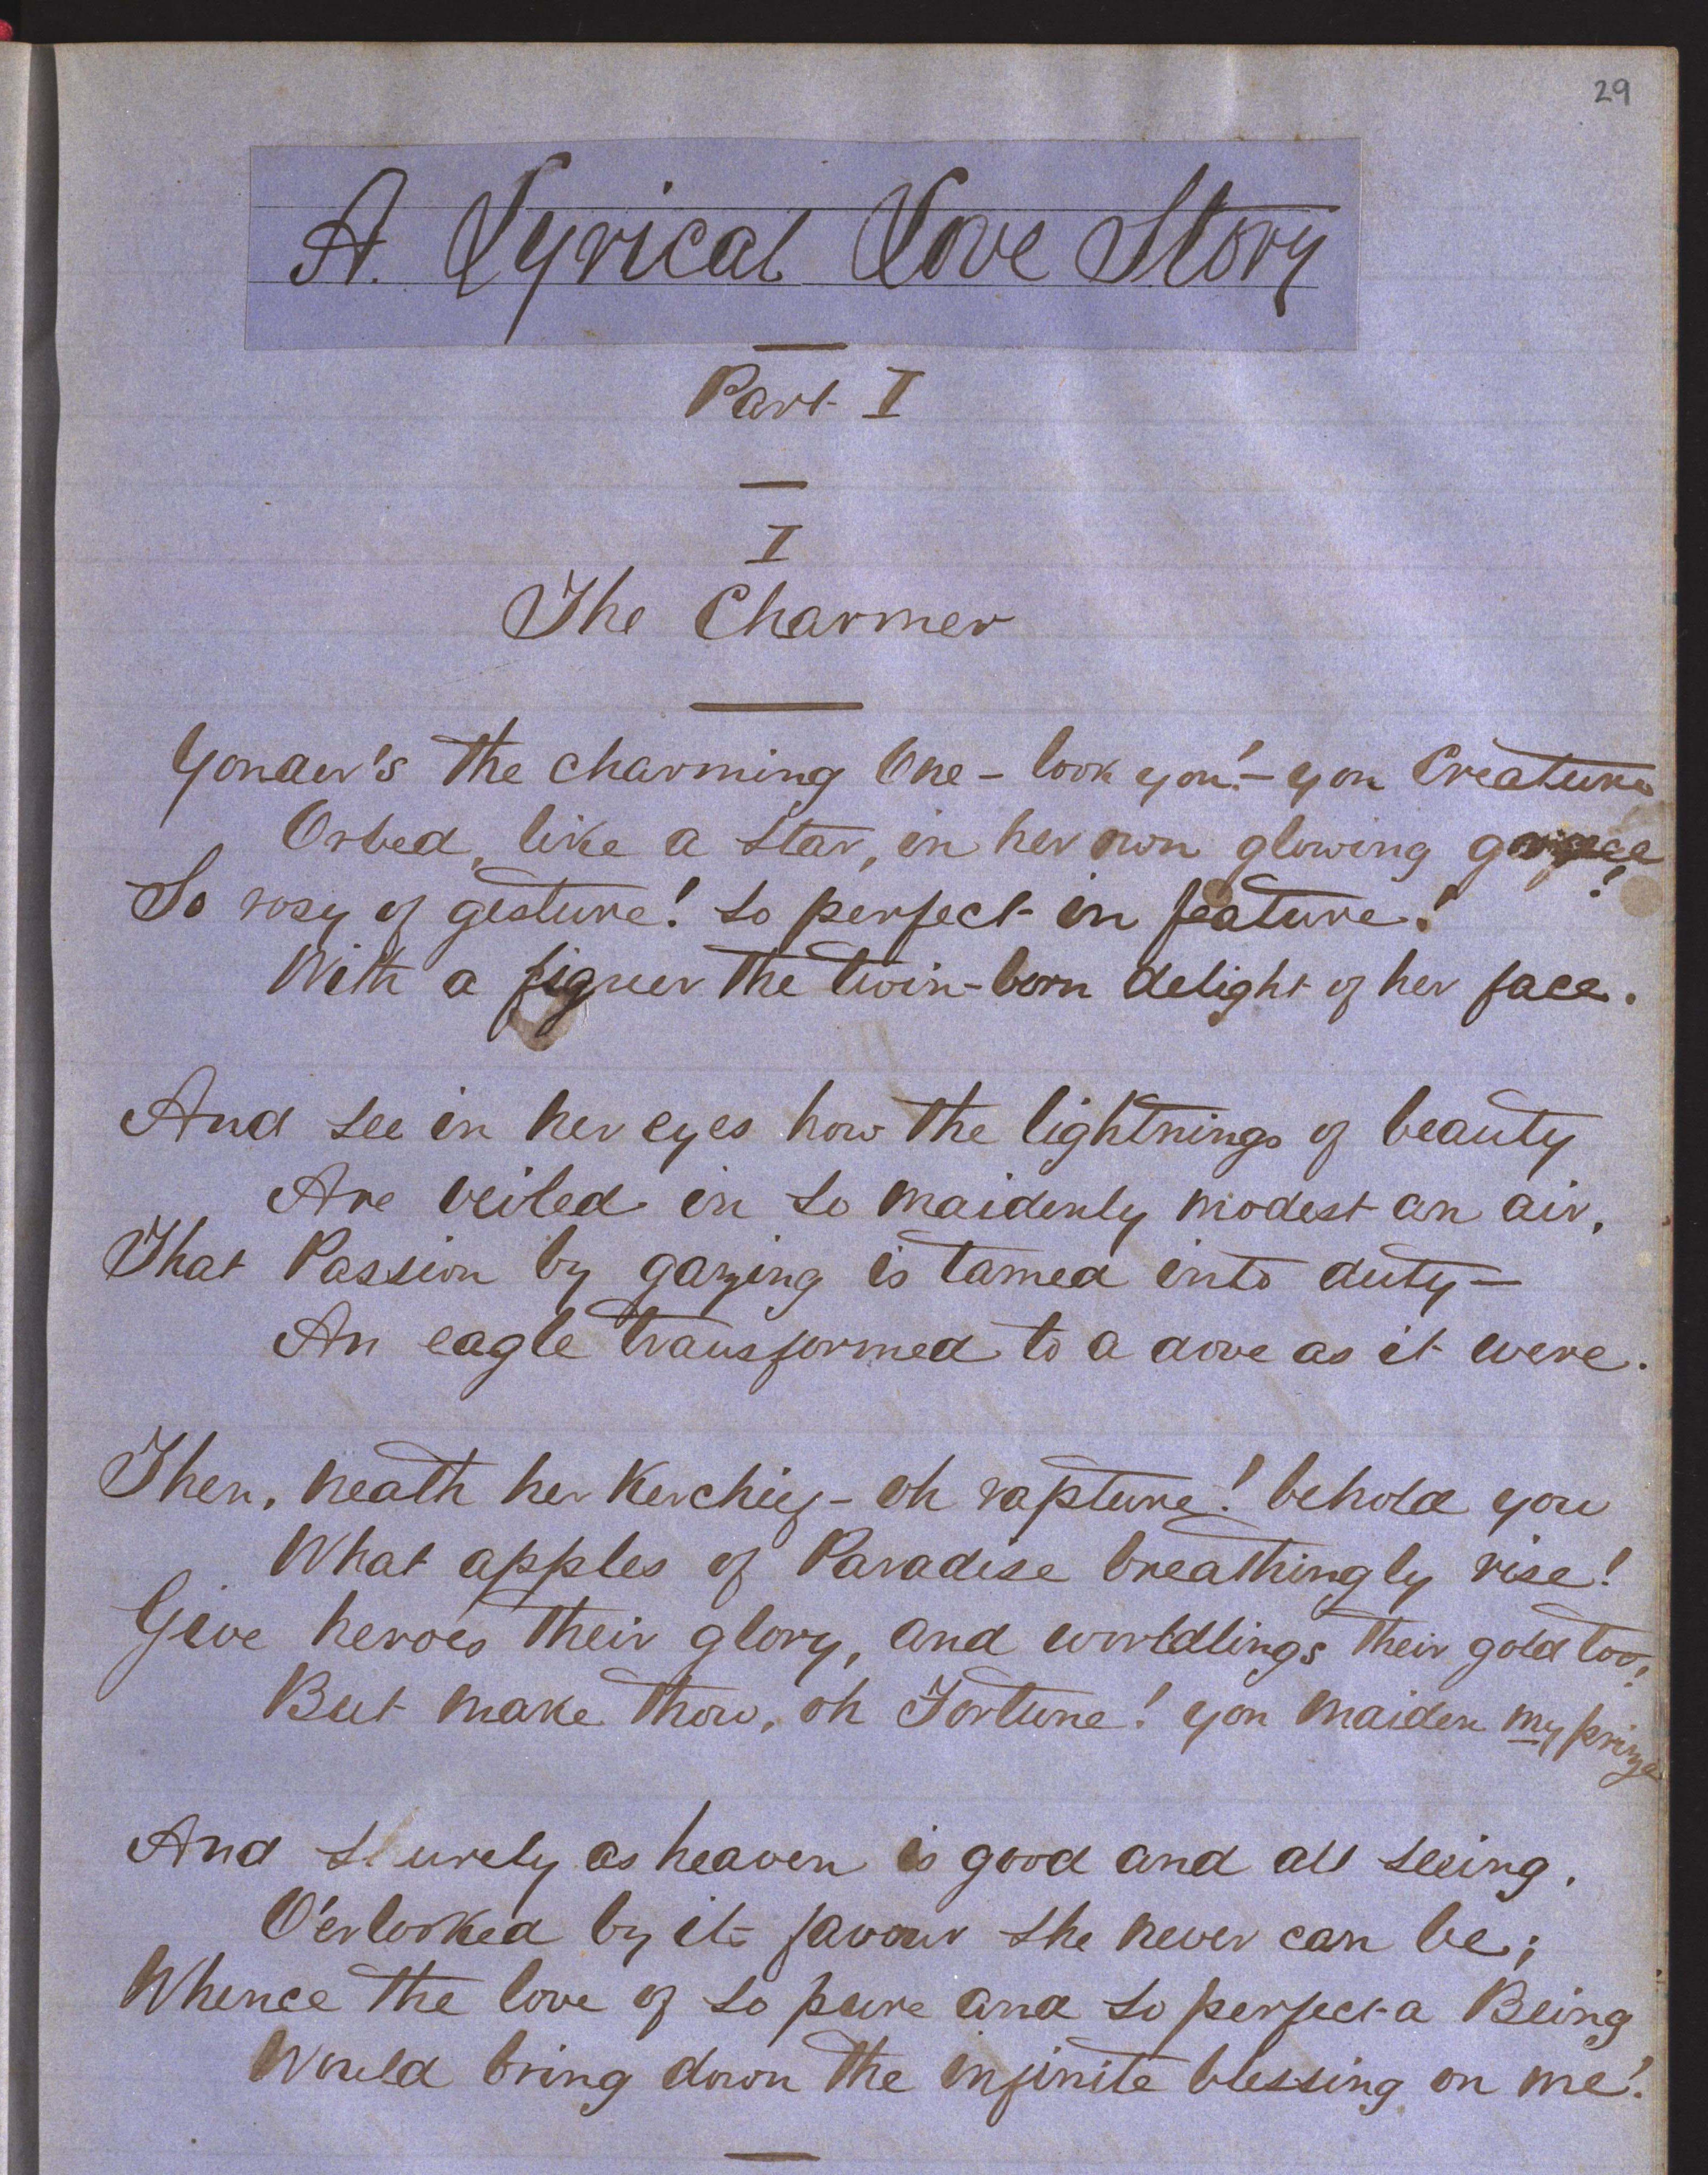 29
A Lyrical Love Story
Part I
I
The Charmer
Yonder's the charming One - look you! - yon Creature
Orbed, like a star, in her own glowing grace!
So rosy of gesture! so perfect in feature!
With a figuer the twin-born delight of her face.
And see in her eyes how the lightnings of beauty
Are veiled in so maidenly modest an air,
That Passion by gazing is tamed into duty—
An eagle transformed to a dove as it were.
Then, neath her kerchief - oh rapture! behold you
What apples of Paradise breathingly rise!
Give heroes their glory, and worldlings their gold too,
But make thou, oh Fortune! yon maiden my prize
And surely as heaven is good and all seeing,
O'erlooked by its favour she never can be;
Whence the love of so pure and so perfect a Being
Would bring down the infinite blessing on me!